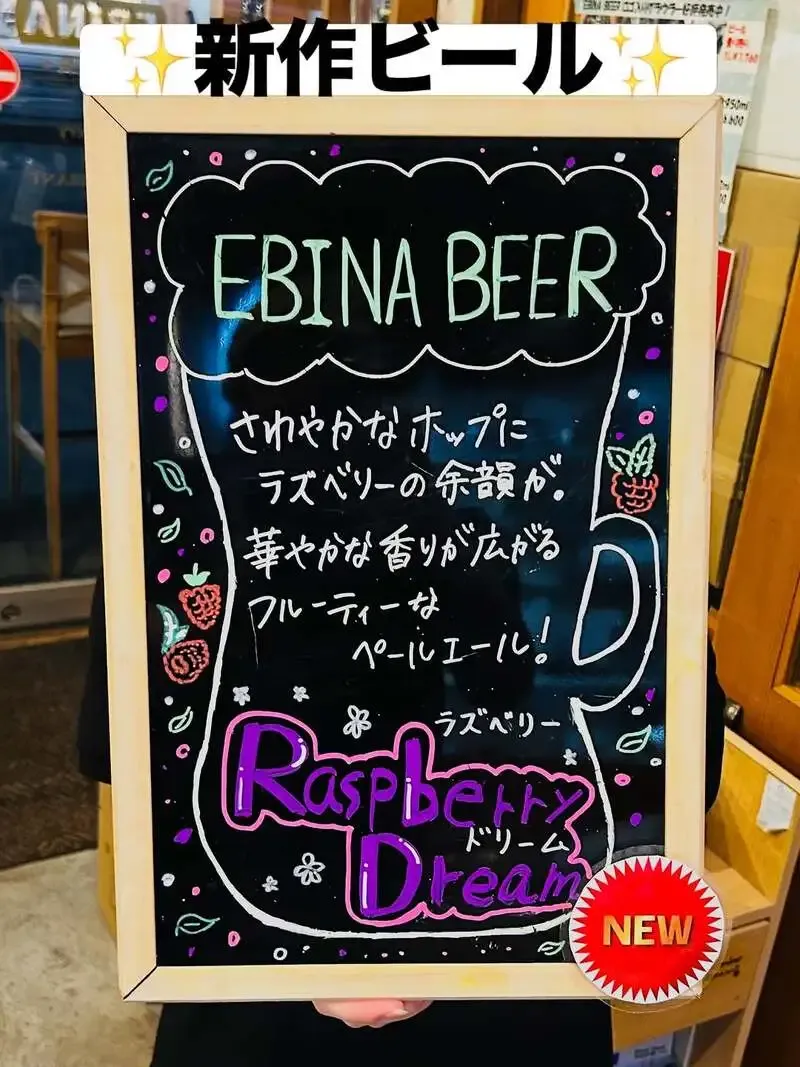 ✨新作ビール✨
EBINA BEER
さわやかなホップに
ラズベリーの余韻が。
華やかな香りが広がる
フルーティーな
ペールエール!
ラズベリー
Raspberry
ドリーム
Dream
NEW